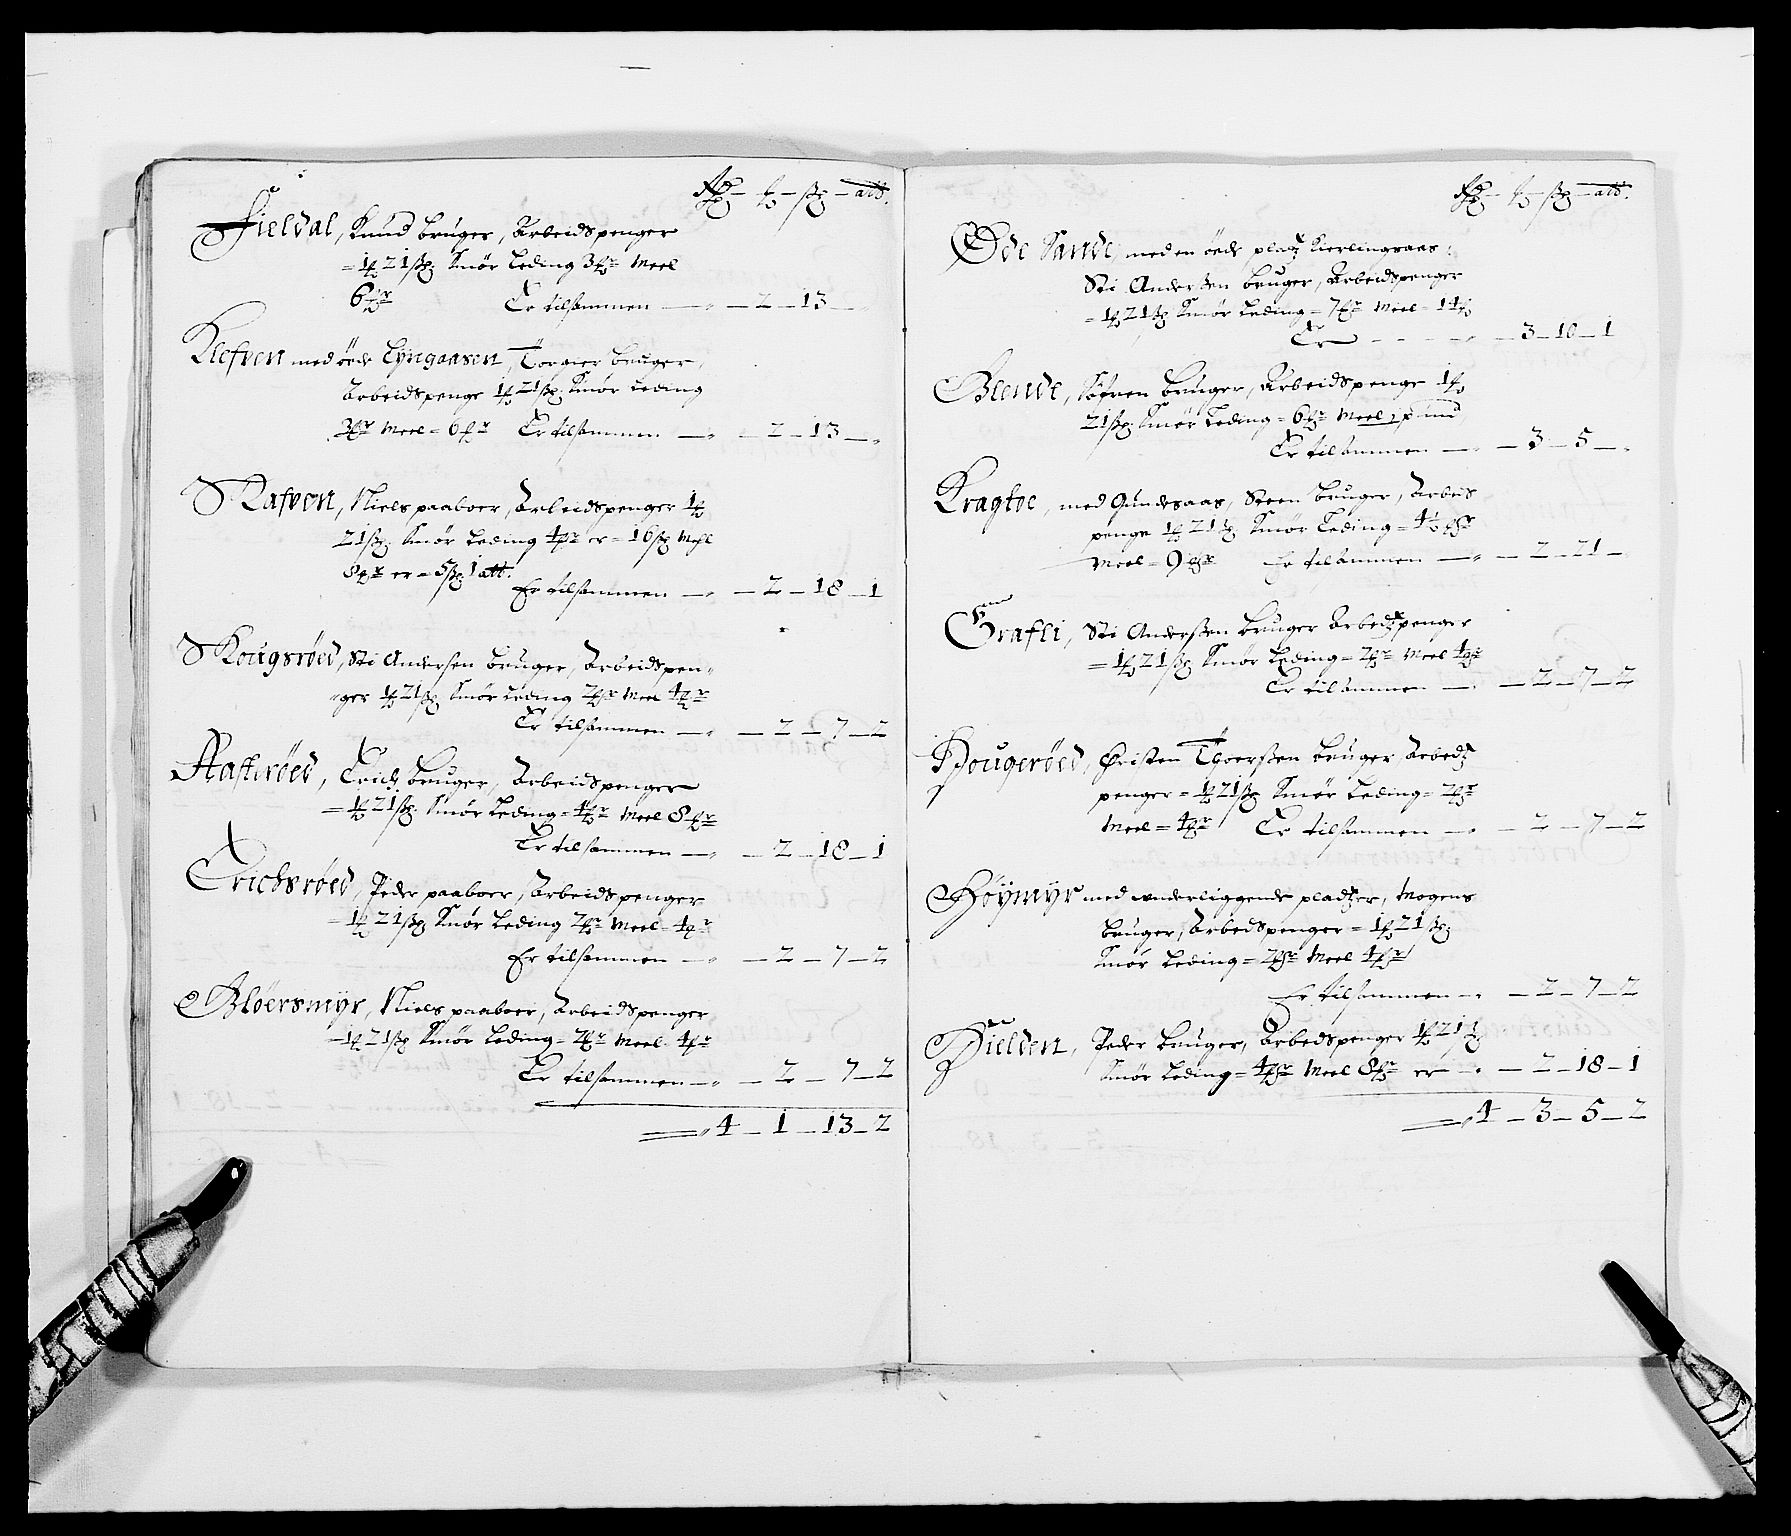 Rd — ℔ — ß — alb.
Fieldal, Knud bruger, Arbeidspenger
= 1 ℔ 21 ß Smør Leding 3 ℔r Meel
6 ℔r Er tilsammen — „ — 2 — 13 — „
Klefven med øede Lyngaasen, Torgier bruger,
Arbeidspenge 1 ℔ 21 ß Smør Leding
3 ℔r Meel = 6 ℔r Er tilsammen — „ — 2 — 13 — „
Rafven, Niels paaboer, Arbeidspenger 1 ℔
21 ß Smør Leding 4 ℔r er = 16 ß Mehl
8 ℔r er = 5 ß 1 alb. Er tilsammen — „ — 2 — 18 — 1
Skougsrøed, Sti Andersen bruger, Arbeidspen-
ger 1 ℔ 21 ß Smør Leding 2 ℔r Meel 4 ℔r
Er tilsammen — „ — 2 — 7 — 2
Aasterøed, Erich bruger, Arbeidspenger
= 1 ℔ 21 ß Smør Leding = 4 ℔r Meel 8 ℔r
Er tilsammen — „ — 2 — 18 — 1
Erichsrøed, Peder paaboer, Arbeidspenger
= 1 ℔ 21 ß Smør Leding 2 ℔r Meel = 4 ℔r
Er tilsammen — „ — 2 — 7 — 2
Bløersmyr, Niels paaboer, Arbeidspenger
= 1 ℔ 21 ß Smør Leding = 2 ℔r Meel = 4 ℔r
Er tilsammen — „ — 2 — 7 — 2
„ 4 — 1 — 13 — 2
Rd — ℔ — ß — alb.
Øde Sande, med en øede platz Kierlingsaas,
Sti Anderßen bruger, Arbeidspenger
= 1 ℔ 21 ß Smør Leding = 7 ℔r Meel = 14 ℔
Er — „ — 3 — 10 — 1
Blende, Søfren bruger, Arbeidspenge 1 ℔
21 ß Smør Leding = 6 ℔r Meel 1 pund
Er tilsammen — „ — 3 — 5 — „
Kragtoe, med Gundersaas, Steen bruger, Arbeis
penge 1 ℔ 21 ß Smør Leding = 4½ ℔r
Meel = 9 ℔r Er tilsammen — „ — 2 — 21 — „
Grafli, Sti Anderßen bruger Arbedtzpenger
= 1 ℔ 21 ß Smør Leding = 2 ℔r Meel 4 ℔r
Er tilsammen — „ — 2 — 7 — 2
Hougerøed, Christen Thoerßen bruger Arbedtz
penger = 1 ℔ 21 ß Smør Leding = 2 ℔r
Meel = 4 ℔r Er tilsammen — „ — 2 — 7 — 2
Høymyr med underliggende pladtzer, Mogens
bruger, Arbedspenger = 1 ℔ 21 ß
Smør Leding = 2 ℔r Meel 4 ℔r
Er tilsammen — „ — 2 — 7 — 2
Hielden, Peder bruger, Arbedspenger 1 ℔ 21 ß
Smør Leding = 4 ℔r Meel 8 ℔r er — „ — 2 — 18 — 1
„ 4 — 3 — 5 — 2